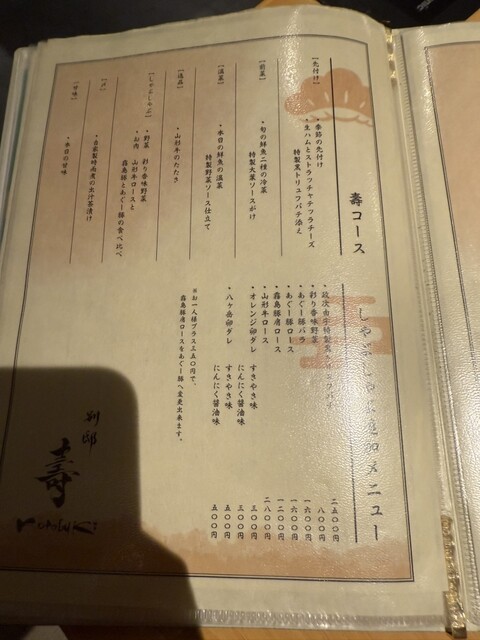 壽コース
【先付け】
・季節の先付け
・生ハムとストラッチャテッラチーズ
特製黒トリュフパテ添え
【前菜】
・旬の鮮魚二種の冷菜
特製大葉ソースがけ
【温菜】
・本日の鮮魚の温菜
特製野菜ソース仕立て
【逸品】
・山形牛のたたき
【しゃぶしゃぶ】
・野菜 彩り香味野菜
・お肉 山形牛ロースと
霧島豚とあぐー豚の食べ比べ
【〆】
・自家製時雨煮の出汁茶漬け
【甘味】
・本日の甘味
しゃぶしゃぶ追加メニュー
二五〇〇円
・彩り香味野菜 八〇〇円
・あぐー豚バラ 一六〇〇円
・あぐー豚ロース 一六〇〇円
・霧島豚肩ロース 一二〇〇円
・山形牛ロース 二八〇〇円
・オレンジ卵ダレ すきやき味 三〇〇円
にんにく醤油味 三〇〇円
・八ヶ岳卵ダレ すきやき味 五〇〇円
にんにく醤油味 五〇〇円
※お一人様プラス三五〇円で、
霧島豚肩ロースをあぐー豚へ変更出来ます。
別邸
壽